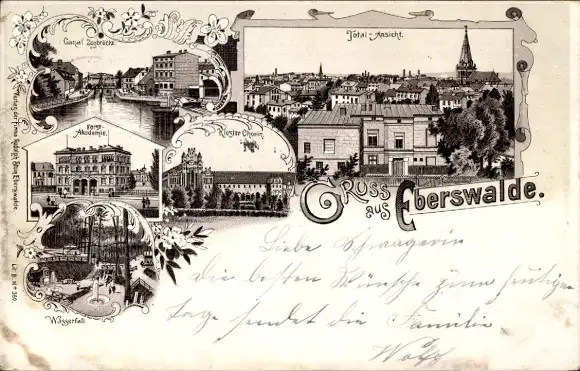 Canal Zugbrücke.
Total-Ansicht.
Forst-
Akademie.
Kloster Chorin
Gruss
aus
Eberswalde.
Wasserfall.
Verlag der Firma Adolph
Eberswalde.
Liebe Schwägerin
die besten Wünsche zum heutigen
Tage sendet die Familie
Wolff